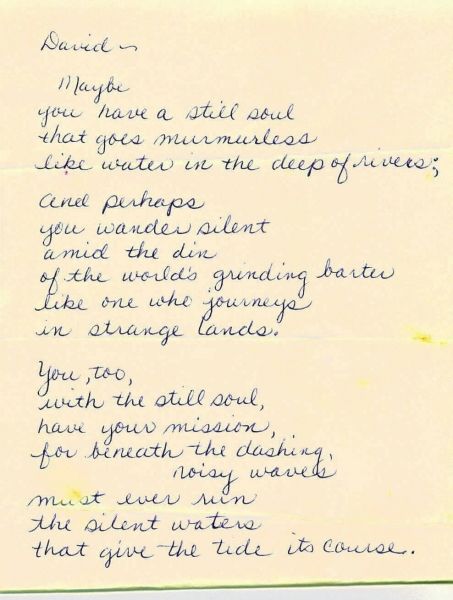 David ~
Maybe
you have a still soul
that goes murmurless
like water in the deep of rivers;
And perhaps
you wander silent
amid the din
of the world's grinding barter
like one who journeys
in strange lands.
You, too,
with the still soul,
have your mission,
for beneath the dashing,
noisy waves
must ever run
the silent waters
that give the tide its course.